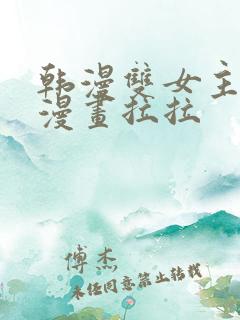 韩漫雙女主
漫畫拉拉
傅杰
未经同意禁止转载